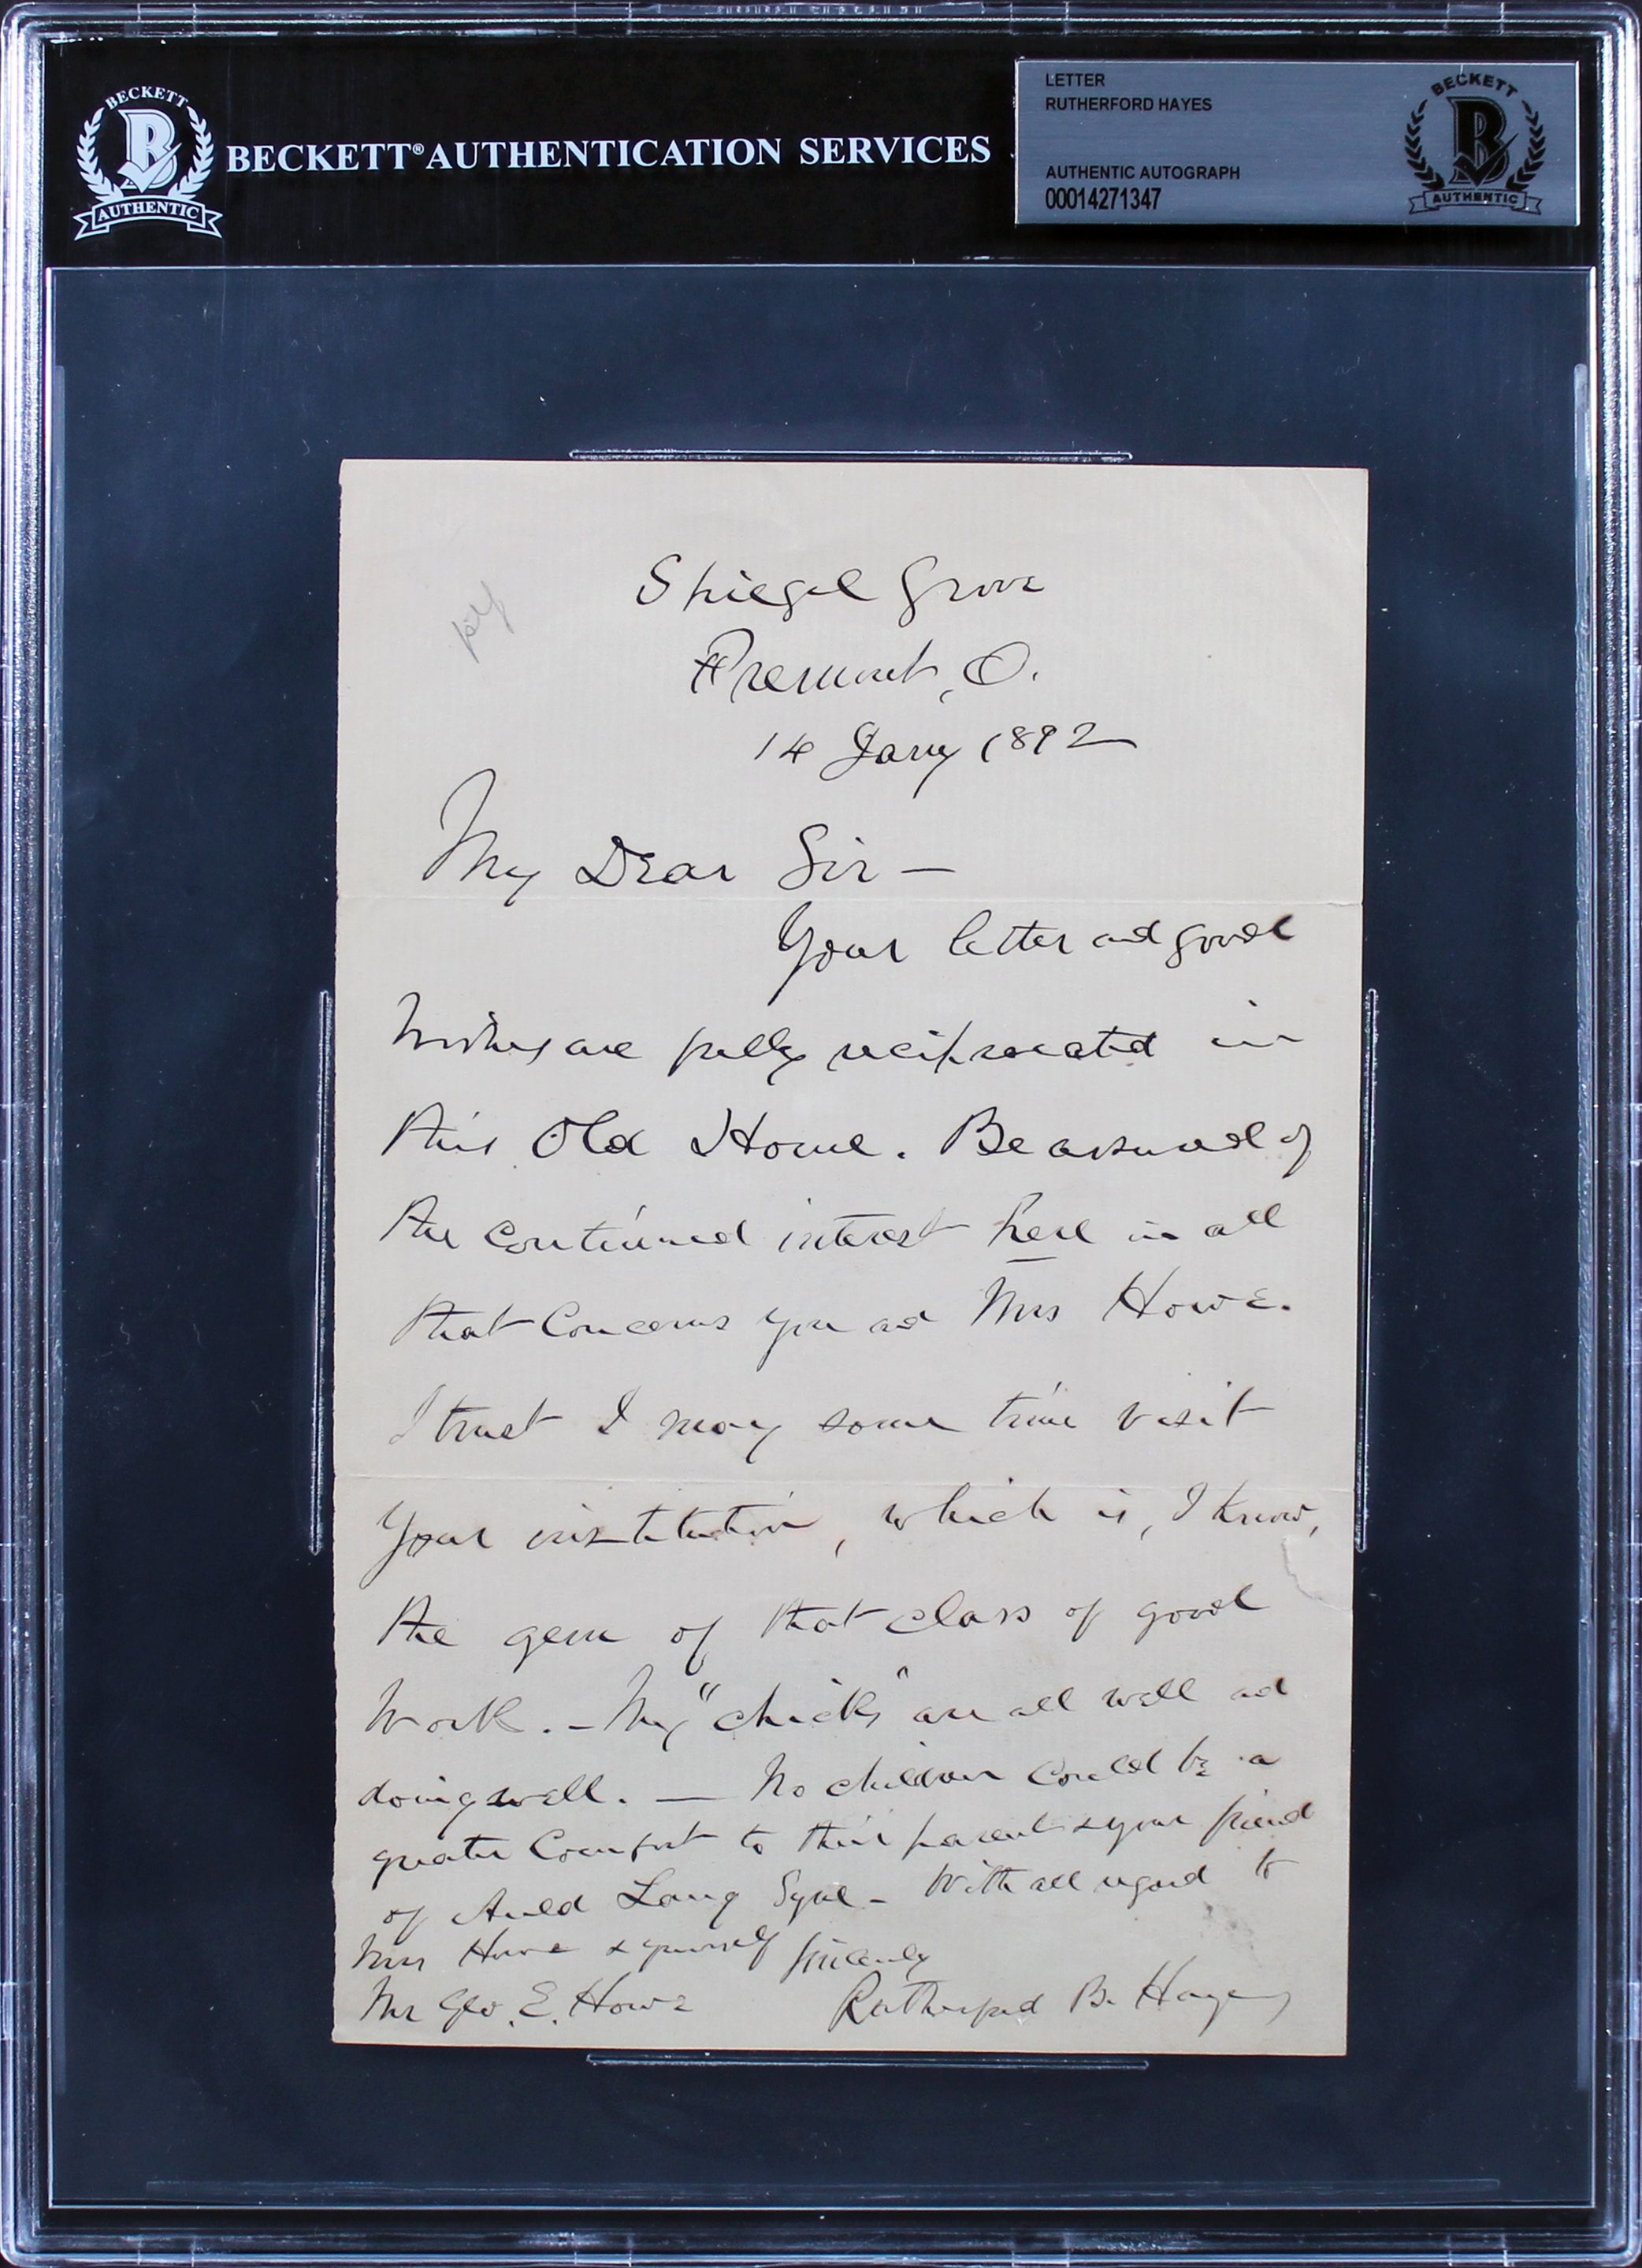 BECKETT
B
AUTHENTIC
BECKETT® AUTHENTICATION SERVICES
LETTER
RUTHERFORD HAYES
AUTHENTIC AUTOGRAPH
00014271347
BECKETT
B
AUTHENTIC
Spiegel Grove
Fremont, O.
14 Jany 1892
My Dear Sir —
Your letter and good
wishes are fully reciprocated in
this Old Home. Be assured of
the continued interest here in all
that concerns you and Mrs Howe.
I trust I may some time visit
your institution, which is, I know,
the gem of that class of good
work. - My "chicks" are all well and
doing well. — No children could be a
greater comfort to their parent & your friend
of Auld Lang Syne - With all regard to
Mrs Howe & yourself Sincerely
Mr Geo. E. Howe Rutherford B. Hayes